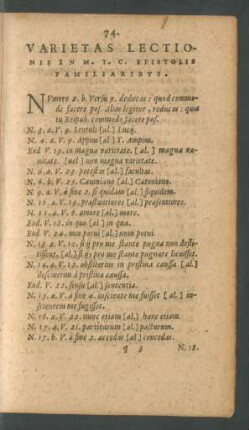 74.
VARIETAS LECTIO-
NIS IN M. T. C. EPISTOLIS
FAMILIARIBVS.
NVmero 2. b. Versu 9. deducas: quod commo-
de facere pos. alias legitur, reducas: quòd
tu Reipub. commodo facere pos.
N. 3. a. V. 9. Lentuli [al.] Lucij.
N. 4. a. V. 9. Appÿ [al.] T. Ampius.
Eod. V. 19. in magna varietate. [al.] magna va-
nitate. [uel] non magna varietate.
N. 6. a. V. 23. potestas [al.] facultas.
N. 6. b. V. 25. Caniniano [al.] Catoniano.
N. 9. a. V. à fine 2. si quidem [al.] siquidem.
N. 10. a. V. 19. præstantiores [al.] præsentiores.
N. 11. a. V. 6. amore [al.] more.
Eod. V. 12. in quo [al.] in qua.
Eod. V. 24. non potui [al.] non potui.
N. 13. a. V. 10. si ÿ pro me stante pugna non desti-
tissent, [al.] si ÿ pro me stante pugnare
N. 16. a. V. 12. obstiterim in pristina caussa [al.]
desciuerim à pristina caussa.
Eod. V. 22. sensu [al.] sententia.
N. 15. a. V. à fine 4. insciente me fuisset [al.] in-
scientem me fugisset.
N. 16. a. V. 22. nunc etiam [al.] hanc etiam.
N. 17. a. V. 21. partiturum [al.] pacturum.
N. 17. b. V. à fine 2. accedas [al.] concedas.
N. 18.